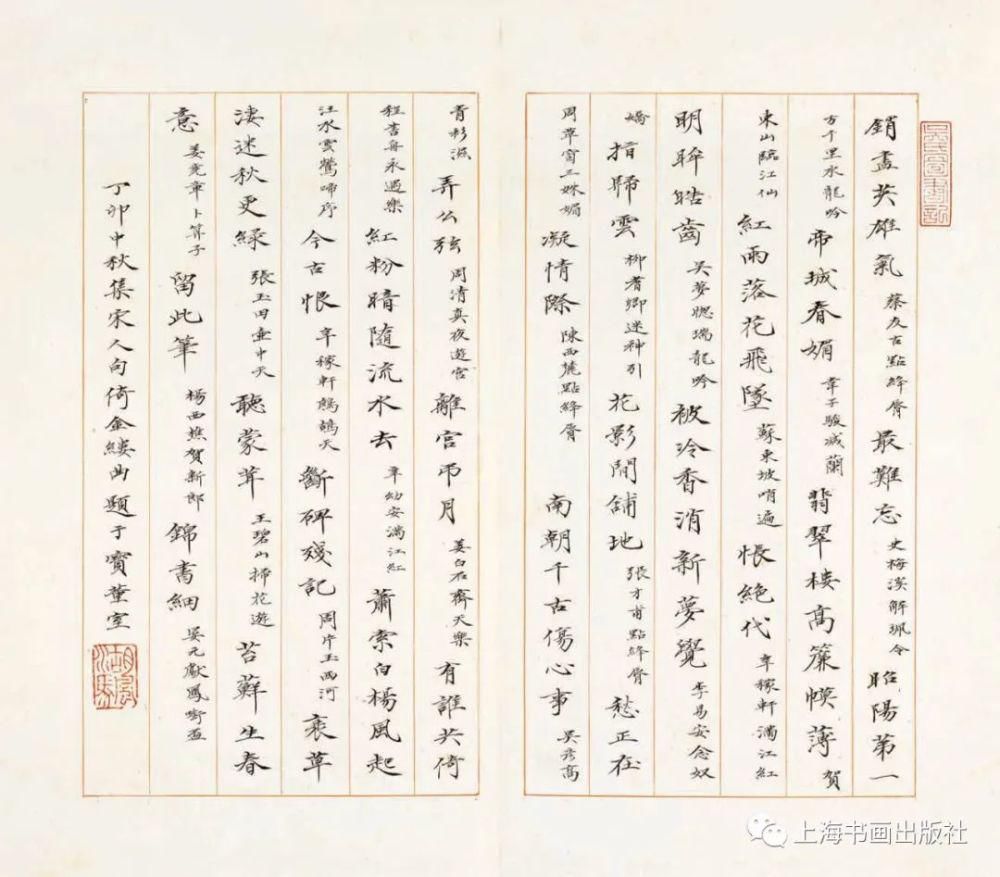 吳氏圖書記
銷盡英雄氣 蔡友古點絳脣 最難忘 史梅溪解珮令 昭陽第一
方千里水龍吟 帝城春媚 韋子駿減蘭 翡翠樓高簾幙薄 賀
東山臨江仙 紅雨落花飛墜 蘇東坡哨遍 悵絕代 辛稼軒滿江紅
明眸皓齒 吳夢牕瑞龍吟 被冷香消新夢覺 李易安念奴
嬌 指歸雲 柳耆卿迷神引 花影閒鋪地 張才甫點絳脣 愁正在
周草窗三姝媚 凝情際 陳西麓點絳脣 南朝千古傷心事 吳彥高
青衫濕 弄么弦 周清真夜遊宮 離宮弔月 姜白石齊天樂 有誰共倚
程書舟永遇樂 紅粉暗隨流水去 辛幼安滿江紅 蕭索白楊風起
汪水雲鶯啼序 今古恨 辛稼軒鷓鴣天 斷碑殘記 周片玉西河 衰草
淒迷秋更綠 張玉田壺中天 聽蒙茸 王碧山掃花遊 苔蘚生春
意 姜堯章卜算子 留此筆 楊西樵賀新郎 錦書細 晏元獻鳳啣盃
丁卯中秋集宋人句倚金縷曲題于寶董室
上海书画出版社